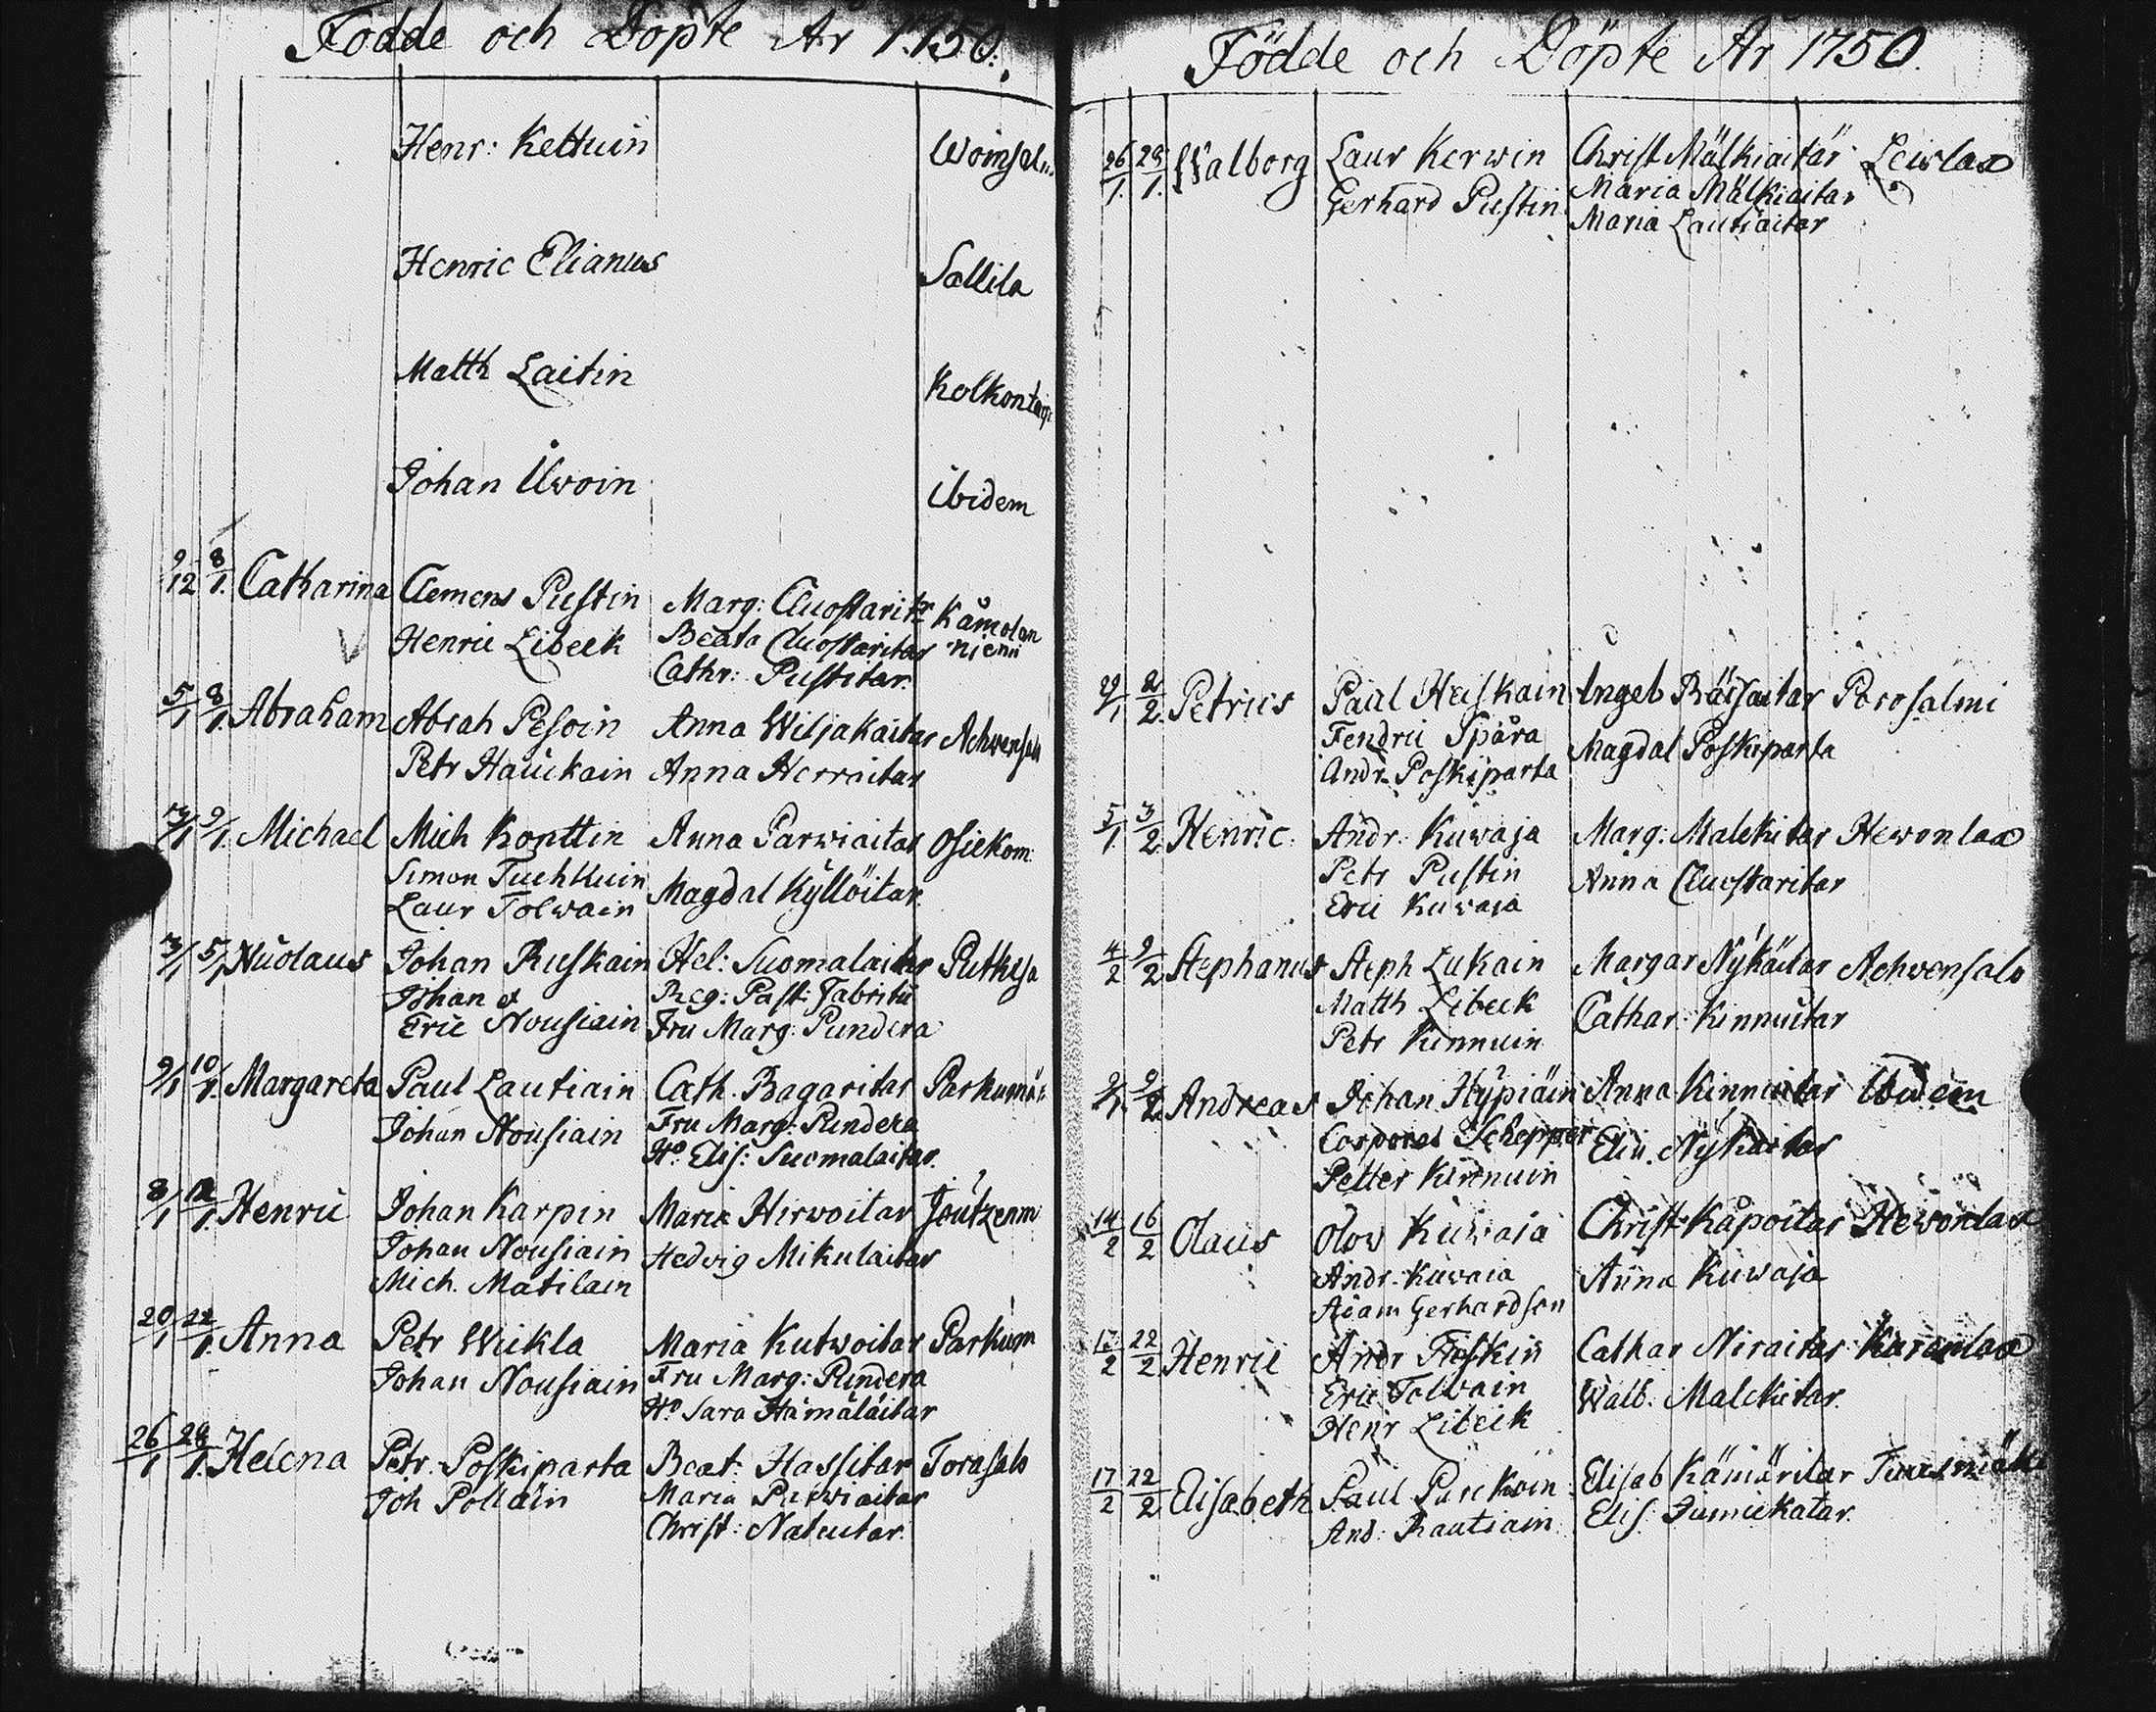 Födde och Döpte År 1750.
Henr: Kettuin
Henric Elianus Sallila
Matth Laitin
Johan Uwoin ibidem
9/12 8/1. Catharina Clemens Pustin Marg: Cluostaritr Kåmolan
Henric Libeck Beata Cluostaritar niemi
Cathr: Pustitar.
5/1 8/1. Abraham Abrah Pesoin Anna Wiljakaitar Achvensalo
Petr Hauckain Anna Herraitar
7/1 9/1. Michael Mich Konttin Anna Parwiaitar Osickom:
Simon Tuchkuin Magdal Kyllöitar
Laur Tolwain
3/1 5/1 Nicolaus Johan Ruskain Hel: Suomalaitar
Johan et Reg: Past: Fabritii
Eric Nousiain Fru Marg: Pundera
9/1 10/1. Margareta Paul Lautiain Cath. Bagaritar
Johan Nousiain Fru Marg: Pundera
Ho. Elis: Suomalaitar.
8/1 Henric Johan Karpin Maria Hirwoitar
Johan Nousiain Hedvig Mikulaitar
Mich. Matilain
20/1 22/1. Anna Petr Wickla Maria Kutwoitar Parkum
Johan Nousiain Fru Marg: Pundera
Ho Sara Hämäläitar
26/1 28/1. Helena Petr. Poskiparta Beat: Hassitar Torasalo
Joh Pollain Maria Parwiaitar
Christ: Natuitar.
Födde och Döpte År 1750.
26/1. 28/1. Walborg Laur Kerwin Christ Mälkiaitär Leislax
Gerhard Pustin Maria Mälkiaitar
Maria Lautiaitar
29/1 2/2. Petrus Paul Huskain Ingeb Räisaitar Porosalmi
Fendric Spåra Magdal Poskiparta
Andr. Poskiparta
5/1. 3/2 Henric. Andr. Kuwaja Marg: Malckitar Hewonlax
Petr Pustin Anna Cluostaritar
Eric Kuwaja
4/2 9/2 Stephanus Steph Lukain Margar Nykäitar Achvensalo
Matth Libeck Cathar. Kinnuitar
Petr Kinnuin
9/1. 9/2 Andreas Johan Hypiäin Anna Kinnuitar Ibidem
Corporal Schepper Elin. Nykäitar
Petter Kinnuin
14/2 16/2 Olaus Olow Kuwaja Christ Kåpoitar Hewonlax
Andr. Kuwaia Anna Kuwaja
Adam Gerhardson
17/2 22/2 Henric Andr Fiskin Cathar Niraitar
Eric Tolwain Walb: Malckitar.
Henr Libeck
17/2 22/2 Elisabeth Paul Purckoin Elisab Kämäritar
And: Rautiain Elis: Jumickatar.